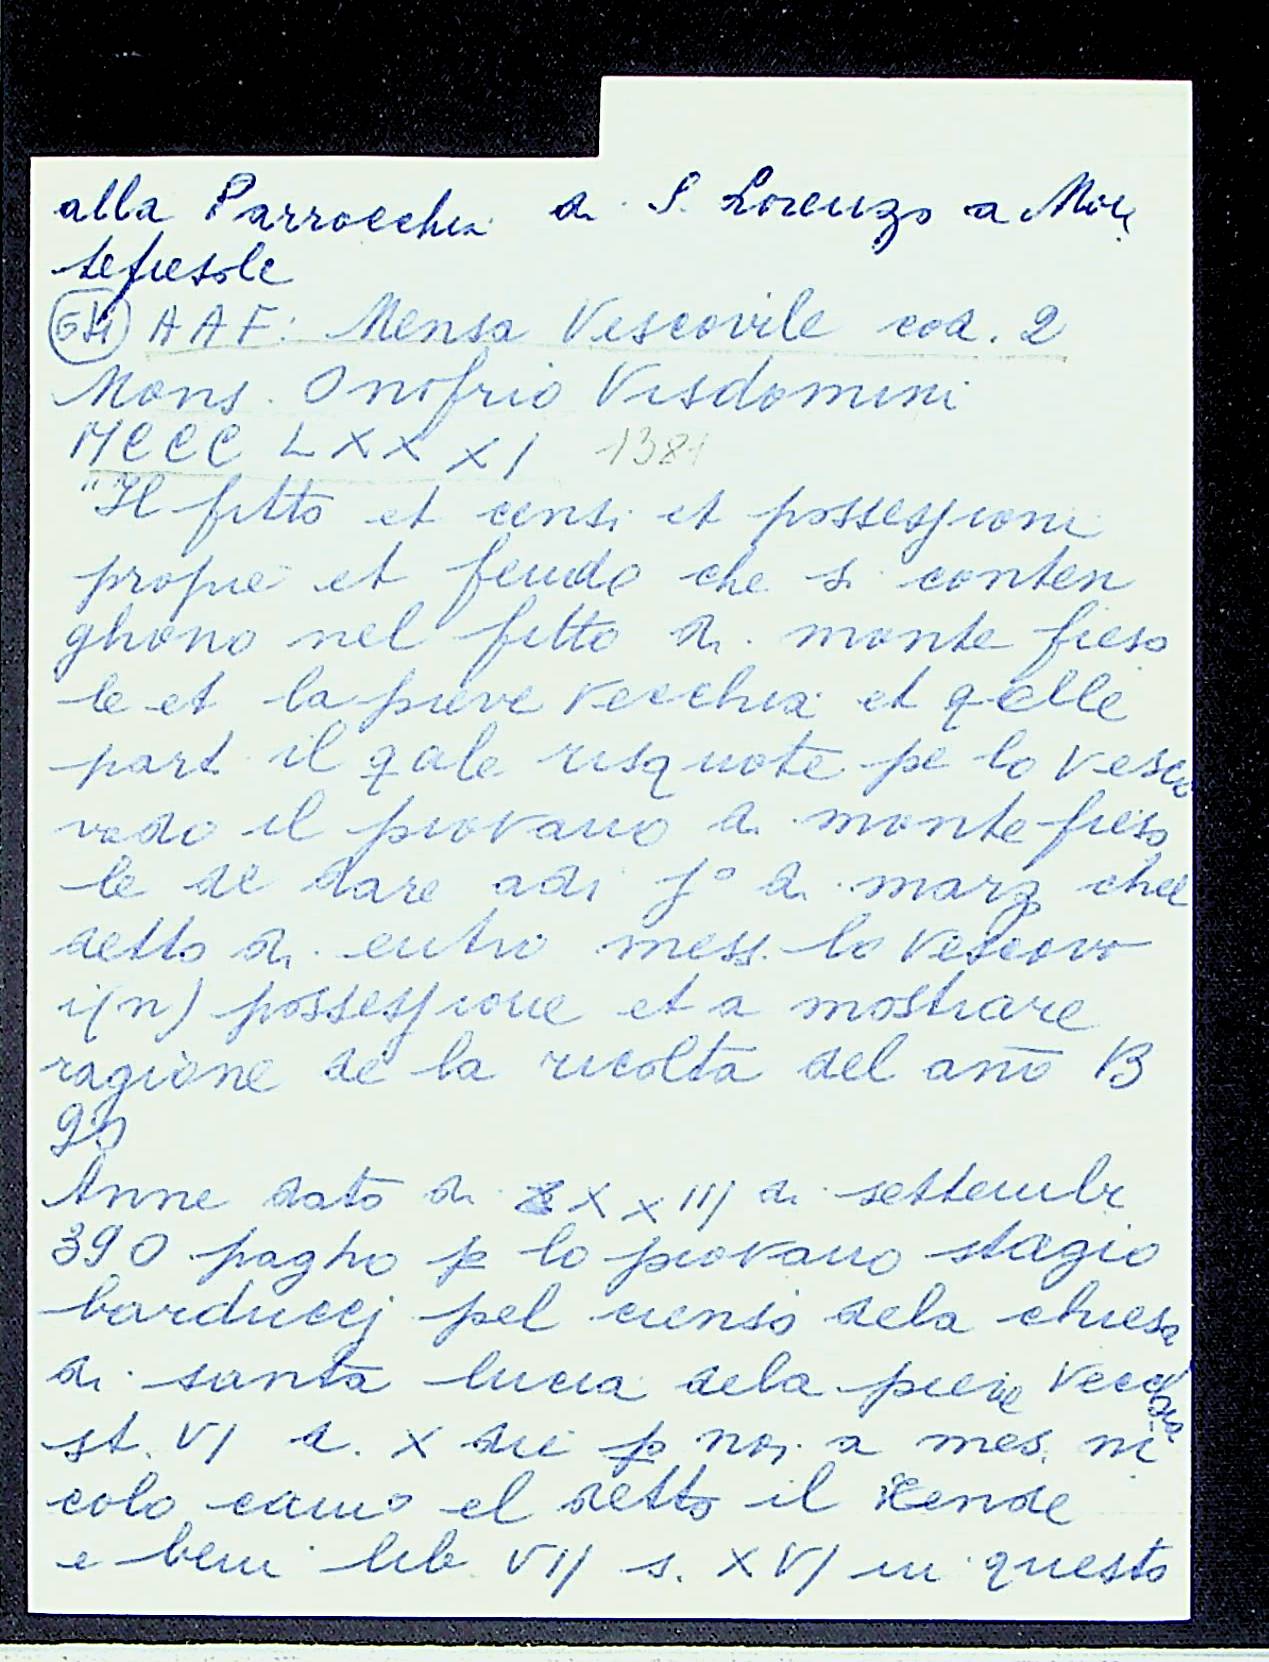 alla Parrocchia di S. Lorenzo a Mon
tefiesole
AAF: Mensa Vescovile cod. 2
Mons. Onofrio Visdomini
MCCC LXXXI 1381
"Il fitto et censi et possessioni
proprie et feudo che si conten
ghono nel fitto di monte fieso
le et la pieve vecchia et qelle
part il qale risquote pe lo vesco
vado il piovano di monte fieso
le de dare adi j° di marz chel
detto di entro mess. lo vescovo
i(n) possessione et a mostrare
ragione de la ricolta del ano 13
90
Anne dato di XXIII di settembr
390 pagho p lo piovano stagio
barduccj pel censo dela chiesa
di santa lucia dela pieve vecchia
st. VI d. X die p noi a mes. ni
colo camo el detto il rende
e beni lib VII s. XVI in questo